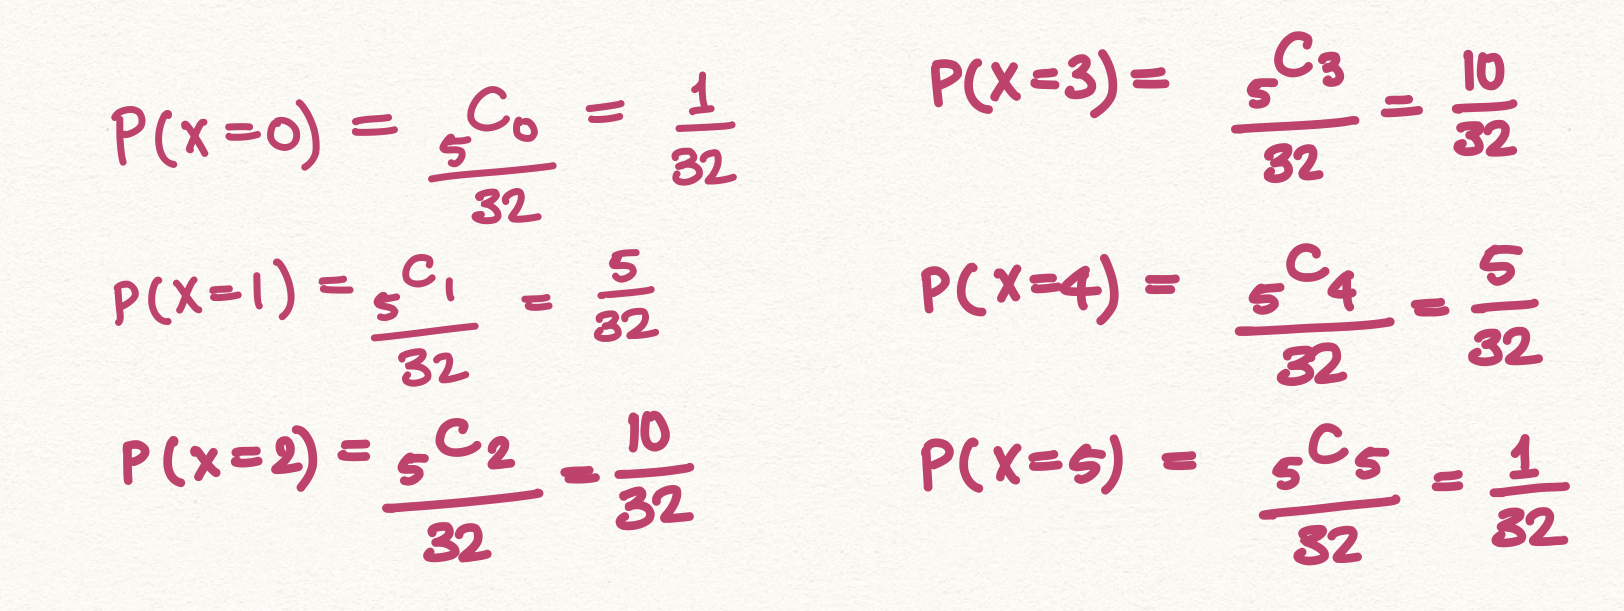 P(X=0) = ₅C₀/32 = 1/32
P(X=1) = ₅C₁/32 = 5/32
P(X=2) = ₅C₂/32 = 10/32
P(X=3) = ₅C₃/32 = 10/32
P(X=4) = ₅C₄/32 = 5/32
P(X=5) = ₅C₅/32 = 1/32